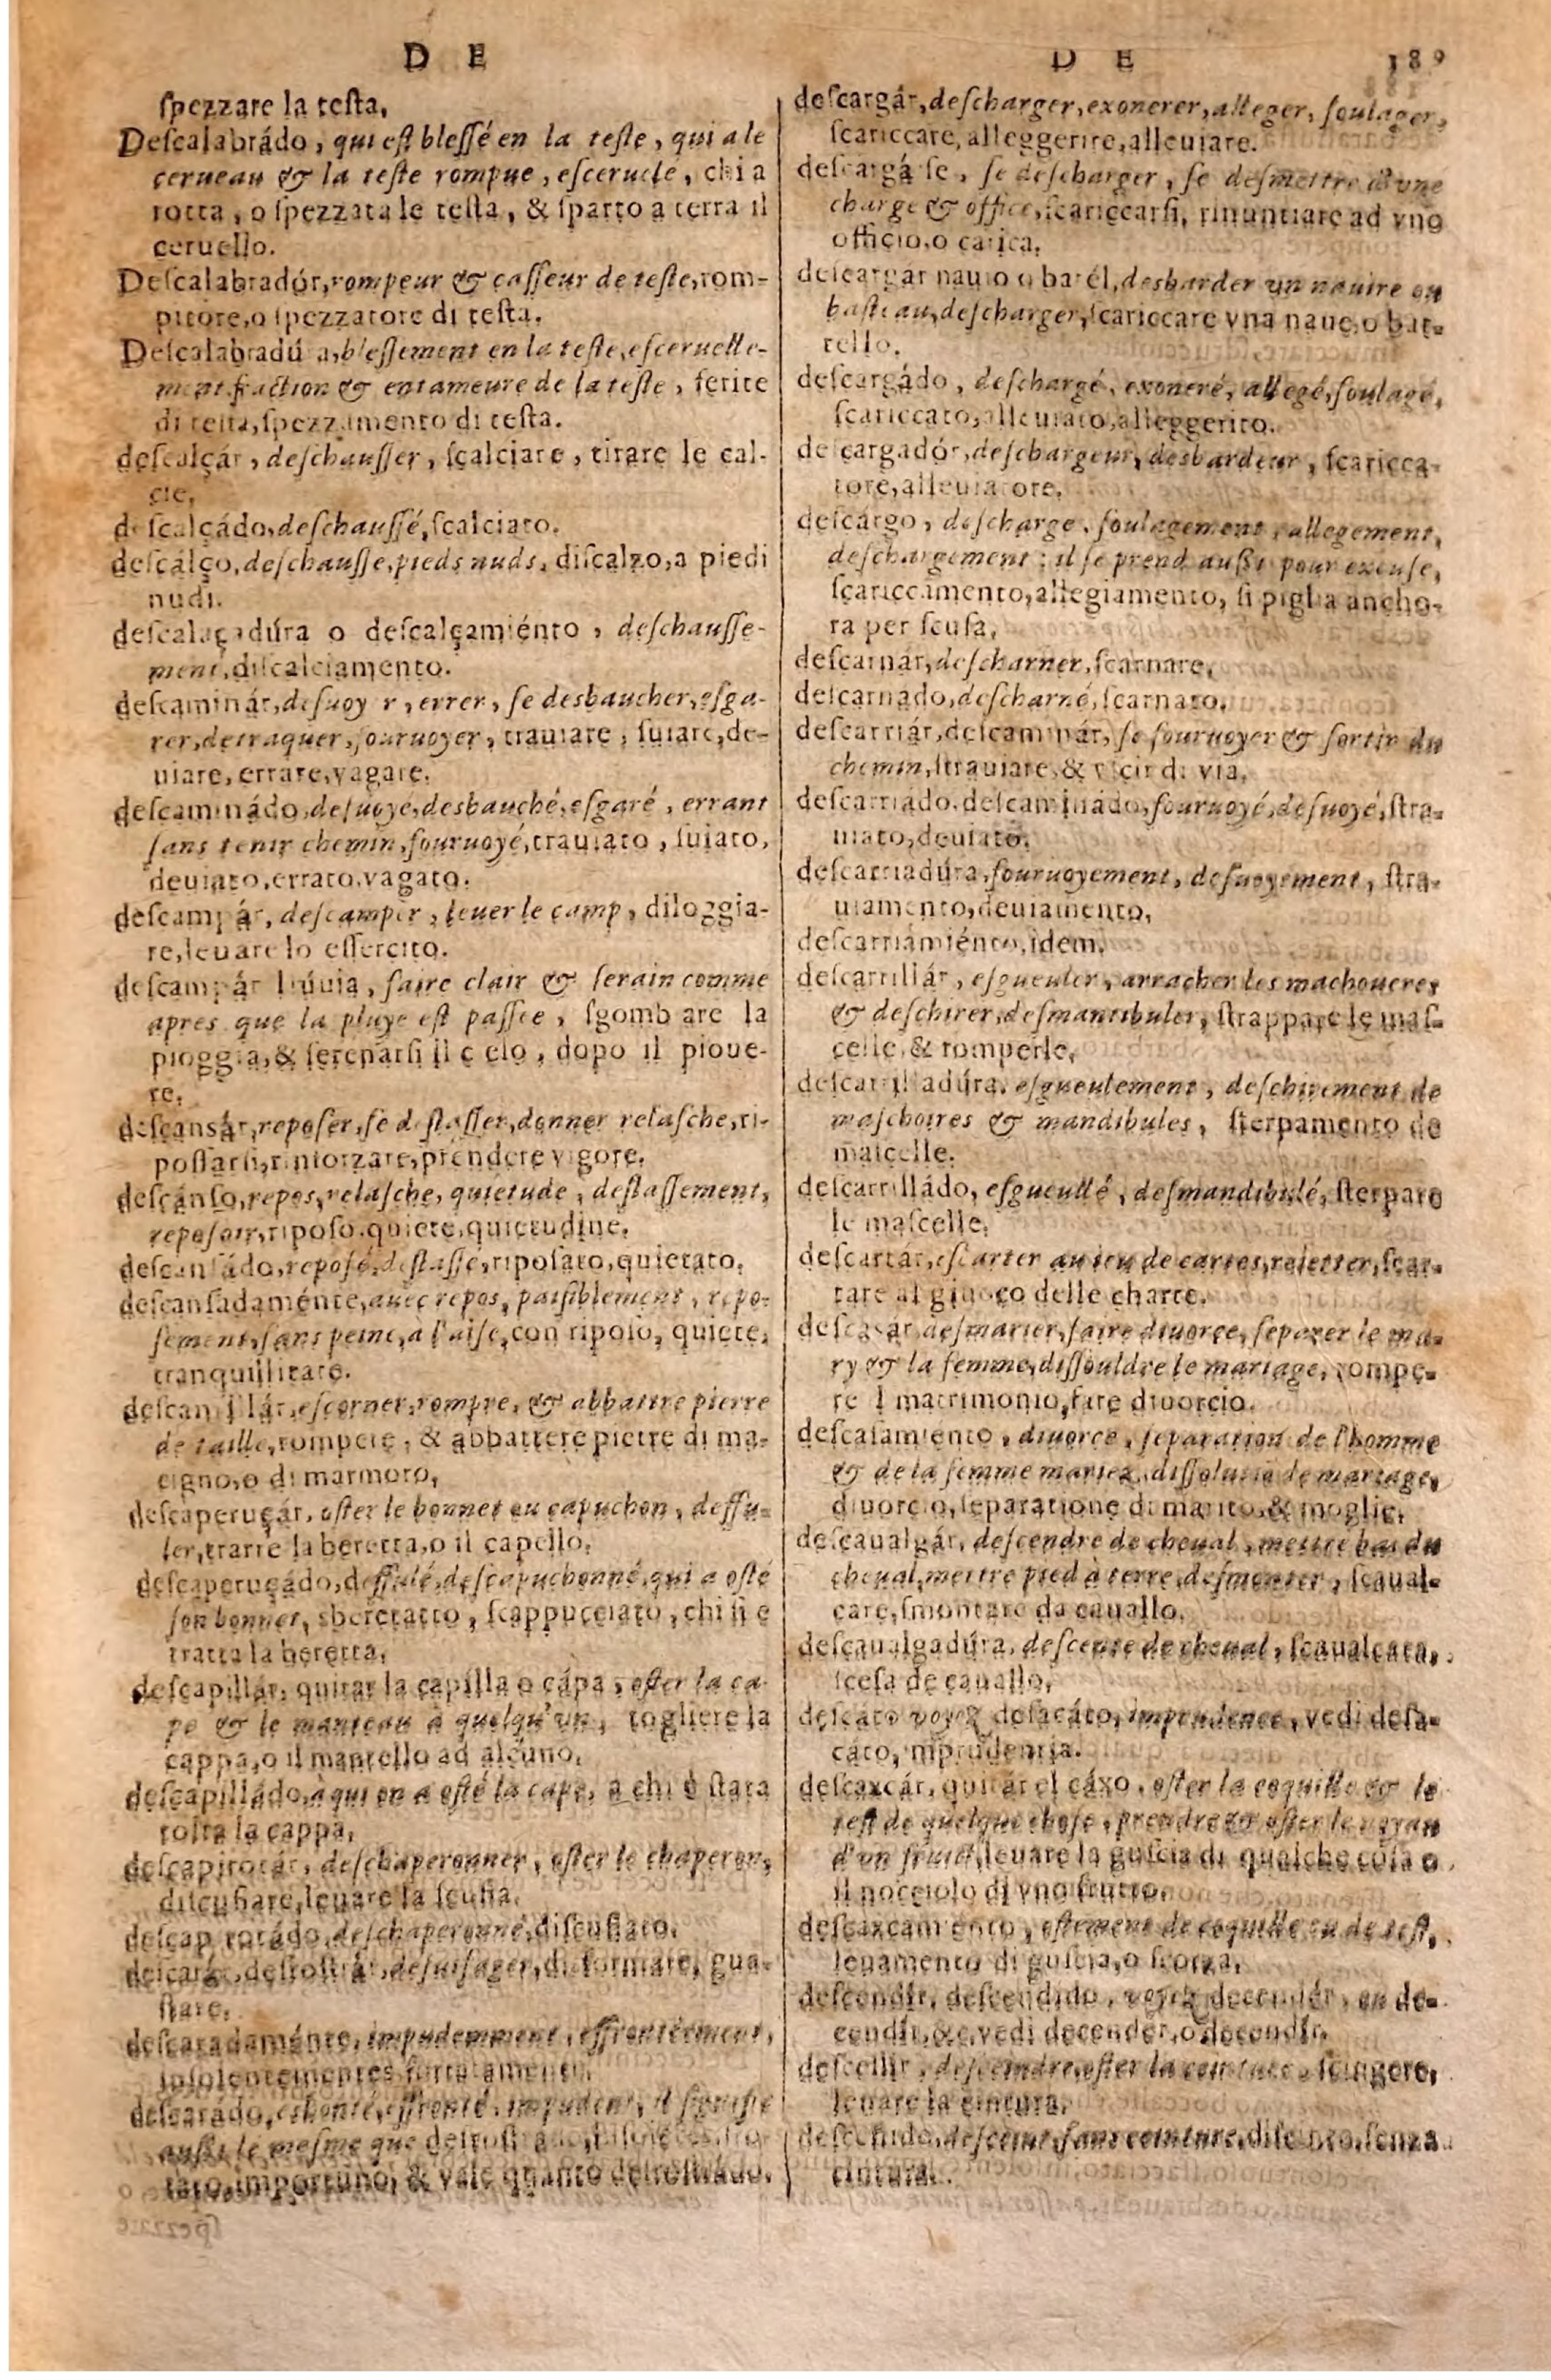 D E
ſpezzare la teſta,
Deſcalabrádo, qui eſt bleſſé en la teſte, qui a le
cerueau & la teſte rompue, eſceruele, chi a
rotta, o ſpezzata le teſta, & ſparto a terra il
ceruello.
Deſcalabradór, rompeur & caſſeur de teſte, rom-
pitore, o ſpezzatore di teſta.
Deſcalabradú a, bleſſement en la teſte, eſceruelle-
ment fraction & entameure de la teſte, ferite
di teſta, ſpezzamento di teſta.
deſcalçár, deſchauſſer, ſcalciare, tirare le cal-
cie.
deſcalçádo, deſchauſſé, ſcalciato.
deſcálço, deſchauſſe, pieds nuds, diſcalzo, a piedi
nudi.
deſcalaçadúra o deſcalçamiénto, deſchauſſe-
ment, diſcalciamento.
deſcaminár, deſuoy r, errer, ſe desbaucher, eſga-
rer, detraquer, fouruoyer, trauiare, ſuiare, de-
uiare, errare, vagare.
deſcaminádo, deſuoyé, desbauché, eſgaré, errant
ſans tenir chemin, fouruoyé, trauiato, ſuiato,
deuiato, errato, vagato.
deſcampár, deſcamper, leuer le camp, diloggia-
re, leuare lo eſſercito.
deſcampár lúuia, faire clair & ſerain comme
apres que la pluye eſt paſſee, ſgomb are la
pioggia, & ſerenarſi il c elo, dopo il pioue-
re.
deſcansár, repoſer, ſe delaſſer, donner relaſche, ri-
poſſarſi, rinforzare, prendere vigore.
deſcánſo, repos, relaſche, quietude, deslaſſement,
repoſoir, ripoſo, quiete, quietudine.
deſcanſádo, repoſé, delaſſé, ripoſato, quietato.
deſcanſadaménte, auec repos, paiſiblement, repo-
ſement, ſans peine, à l'aiſe, con ripoſo, quiete,
tranquillitate.
deſcantillár, eſcorner, rompre, & abbattre pierre
de taille, rompere, & abbattere pietre di ma-
cigno, o di marmoro,
deſcaperuçár, oſter le bonnet ou capuchon, deffu-
ler, trarre la beretta, o il capello.
deſcaperuçádo, deffulé, deſcapuchonné, qui a oſté
ſon bonnet, sberetatto, ſcappucciato, chi ſi e
tratta la beretta,
deſcapillár, quitar la capílla o cápa, oſter la ca-
pe & le manteau à quelqu'vn, togliere la
cappa, o il mantello ad alcuno,
deſcapilládo, à qui on a oſté la cape, a chi è ſtata
tolta la cappa,
deſcapirotár, deſchaperonner, oſter le chaperon,
diſcufiare, leuare la ſcufia,
deſcap rotádo, deſchaperonné, diſcufiato.
deſcarár, deſroſtrár, deſuiſager, diſformare, gua-
ſtare,
deſcaradaménte, impudemment, effrontément,
inſolentemente,
deſcarádo, eshonté, effronté, impudent, il ſignifie
auſſi le meſme que deſroſtrado,
tato, importuno, & vale quanto deſroſtrádo.
D E 189
deſcargár, deſcharger, exonerer, alleger, ſoulager,
ſcariccare, alleggerire, alleuiare.
deſcargá ſe, ſe deſcharger, ſe deſmettre d'vne
charge & office, ſcariccarſi, rinuntiare ad vno
officio, o carica,
deſcargár nauio o batél, desbarder vn nauire ou
baſteau, deſcharger, ſcariccare vna naue, o bat-
tello.
deſcargádo, deſchargé, exoneré, allegé, ſoulagé,
ſcariccato, alleuiato, alleggerito.
deſcargadór, deſchargeur, desbardeur, ſcaricca-
tore, alleuiatore,
deſcárgo, deſcharge, ſoulagement, allegement,
deſchargement; il ſe prend auſſi pour excuſe,
ſcariccamento, allegiamento, ſi piglia ancho-
ra per ſcuſa,
deſcarnár, deſcharner, ſcarnare,
deſcarnado, deſcharné, ſcarnato,
deſcarriár, deſcaminár, ſe fouruoyer & ſortir du
chemin, ſtrauiare, & vſcir di via,
deſcarriádo, deſcaminádo, fouruoyé, deſuoyé, ſtra-
uiato, deuiato,
deſcarriadúra, fouruoyement, deſuoyement, ſtra-
uiamento, deuiamento,
deſcarriamiénto, idem.
deſcarrillár, eſgueuler, arracher les machoueres
& deſchirer, deſmantibuler, ſtrappare le maſ-
celle, & romperle,
deſcarrilladúra, eſgueulement, deſchirement de
maſchoires & mandibules, ſterpamento de
maſcelle.
deſcarrilládo, eſgueullé, deſmandibulé, ſterpare
le maſcelle,
deſcartár, eſcarter au ieu de cartes, reietter, ſcar-
tare al giuoco delle charte.
deſcasár, deſmarier, faire diuorce, ſeparer le ma-
ry & la femme, diſſouldre le mariage, rompe-
re l matrimonio, fare diuorcio.
deſcaſamiento, diuorce, ſeparation de l'homme
& de la femme mariez, diſſolutiō de mariage,
diuorcio, ſeparatione di marito, & moglie,
deſcaualgár, deſcendre de cheual, mettre bas du
cheual, mettre pied à terre, deſmonter, ſcaual-
care, ſmontare da cauallo.
deſcaualgadúra, deſcente de cheual, ſcaualcata,
ſceſa de cauallo,
deſcáto voyez deſacáto, imprudence, vedi deſa-
cáto, mprudentia.
deſcaxcár, quitár el cáxo, oſter la coquille & le
teſt de quelque choſe, prendre & oſter le noyau
d'vn fruict, leuare la guſcia di qualche coſa o
il nocciolo di vno frutto,
deſcaxcamiento, oſtement de coquille ou de teſt,
leuamento di guſcia, o ſcorza,
deſcendír, deſcendido, voyez decendér, ou de-
cendír, &c, vedi decender, o decendír,
deſceñir, deſceindre, oſter la ceinture, ſcingere,
leuare la cintura,
deſceñido, deſceint, ſans ceinture, diſcinto, ſenza
cintura.